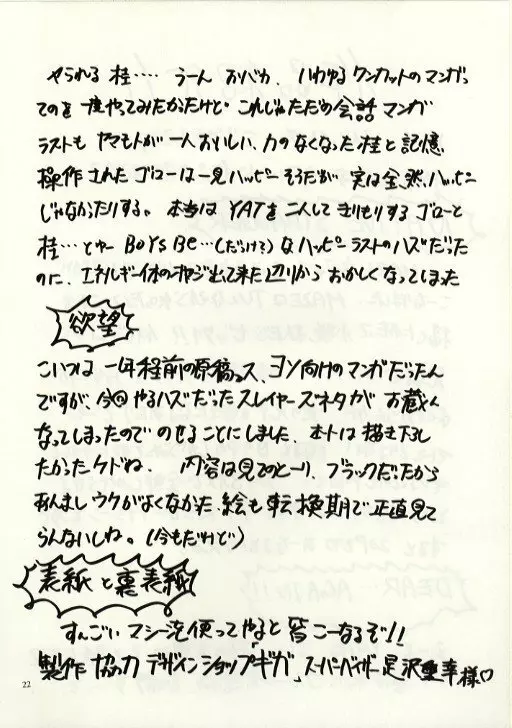 やられる桂‥‥ うーん おバカ、いわゆるワンカットのマンガっ
てのを一度やってみたかったけど これじゃただの会話マンガ
ラストも ヤマモトが一人おいしい、力のなくなった桂と記憶
操作されたゴローは一見ハッピーそうだが 実は全然ハッピー
じゃなかったりする。本当は YATを二人して きりもりするゴローと
桂…とゆー BOYS BE…(だっけ?)なハッピーラストのハズだった
のに、エネルギー体のオヤジ出て来た辺りから おかしくなってしまった
欲望
こいつは 一年程前の原稿っス、ヨソ向けのマンガだったん
ですが、今回やるハズだったスレイヤーズネタが お蔵入
なってしまったので のせることにしました、ホントは描き下し
たかったケドね。 内容は見てのとーり、ブラックだったから
あんまし ウケがよくなかった、絵も転換期で正直見て
らんないしね。(今もだけど)
表紙と裏表紙
すんごい マシーン使ってやると 皆こーなるぞ!!
製作協力 デザインショップ「ギガ」 スーパーバイザー 足沢 様♡
22